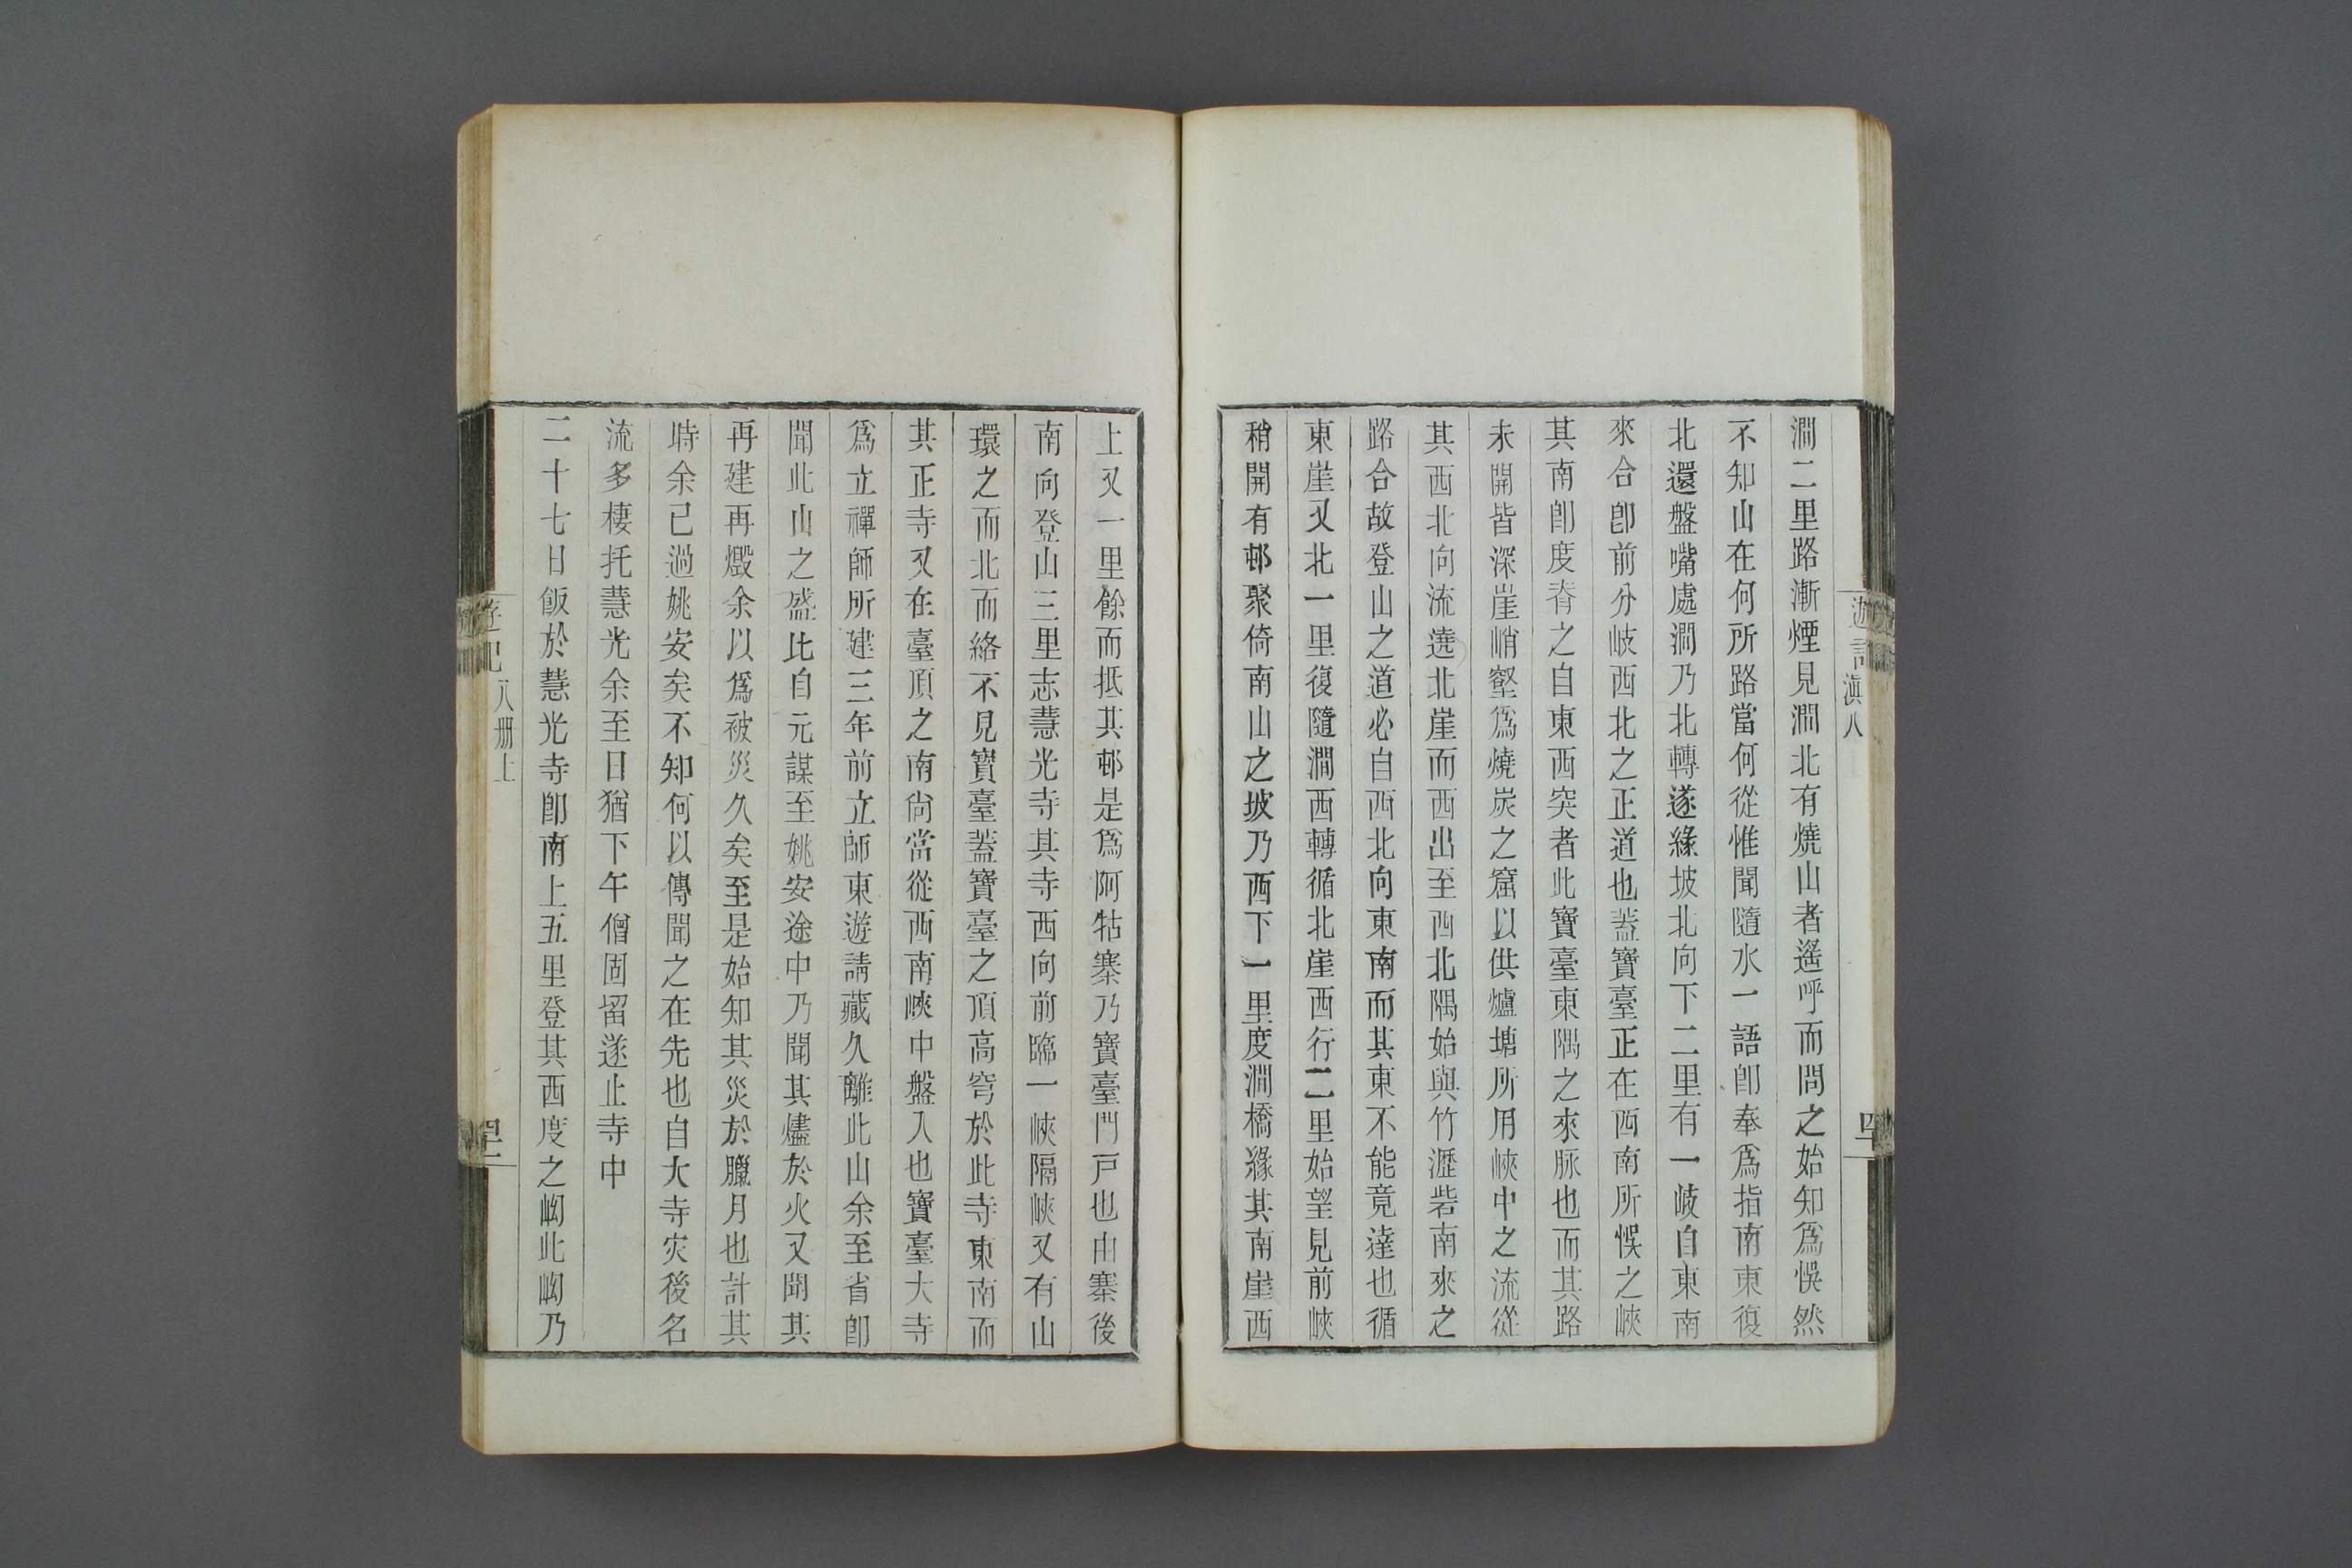 遊記滇八
澗二里路漸煙見澗北有燒山者遙呼而問之始知爲悞然
不知山在何所路當何從惟聞隨水一語卽奉爲指南東復
北還盤嘴處澗乃北轉遂緣坡北向下二里有一岐自東南
來合卽前分岐西北之正道也蓋寶臺正在西南所悞之峽
其南卽度脊之自東西突者此寶臺東隅之來脈也而其路
未開皆深崖峭壑爲燒炭之窟以供爐塘所用峽中之流從
其西西北向流遶北崖而西出至西北隅始與竹瀝砦南來之
路合故登山之道必自西北向東南而其東不能竟達也循
東崖又北一里復隨澗西轉循北崖西行二里始望見前峽
稍開有邨聚倚南山之坡乃西下一里度澗橋緣其南崖西
上又一里餘而抵其邨是爲阿牯寨乃寶臺門戶也由寨後
南向登山三里志慧光寺其寺西向前臨一峽隔峽又有山
環之而北而絡不見寶臺蓋寶臺之頂高穹於此寺東南而
其正寺又在臺頂之南尙當從西南峽中盤入也寶臺大寺
爲立禪師所建三年前立師東遊請藏久離此山余至省卽
聞此山之盛比自元謀至姚安途中乃聞其燼於火又聞其
再建再燬余以爲被災久矣至是始知其災於臘月也計其
時余已過姚安矣不知何以傳聞之在先也自大寺灾後名
流多棲托慧光余至日猶下午僧固留遂止寺中
二十七日飯於慧光寺卽南上五里登其西度之峋此峋乃
遊記八册上